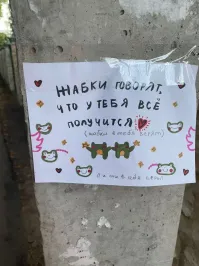 ЖАБКИ ГОВОРЯТ,
ЧТО У ТЕБЯ ВСЁ
ПОЛУЧИТСЯ
(жабки в тебя верят)